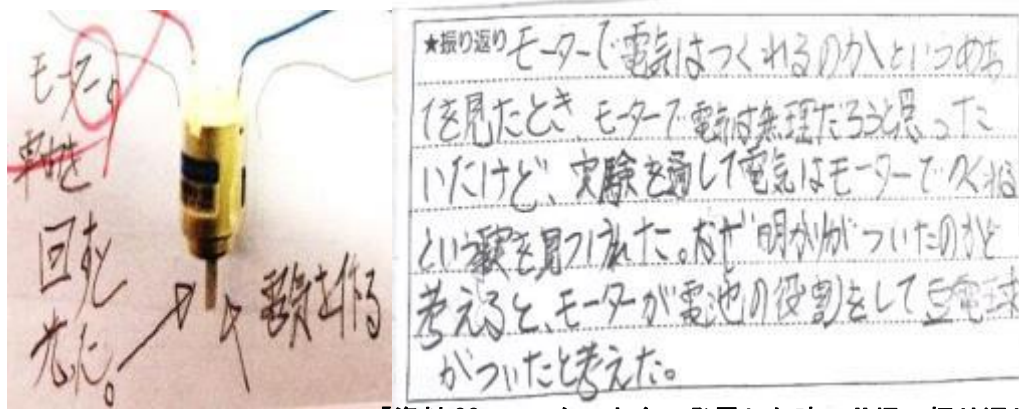 モーター。
車由を
回すと
光た。
電気を作る
★振り返り モーターで電気はつくれるのか、というめあ
てを見たとき、モーターで電気は無理だろうと思った
いたけど、実験を通して電気はモーターでつくれる
という事実を見つけれた。なぜ明かりがついたのかと
考えると、モーターが電池の役割をして豆電球
がついたと考えた。